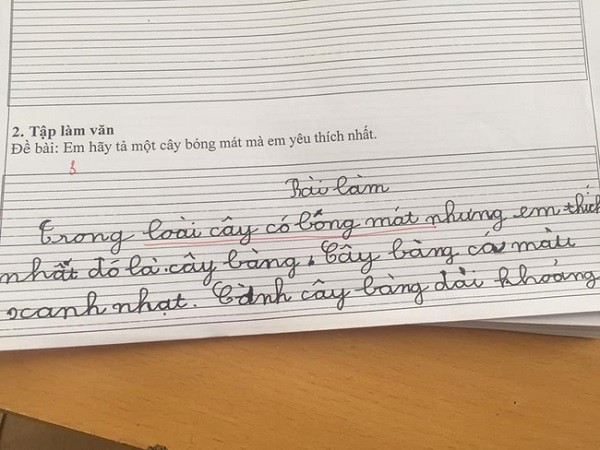 2. Tập làm văn
Đề bài: Em hãy tả một cây bóng mát mà em yêu thích nhất.
Bài làm
Trong loài cây có bống mát nhưng em thích
nhất đó là cây bàng. Cây bàng có màu
xcanh nhạt. Cành cây bàng dài khoảng